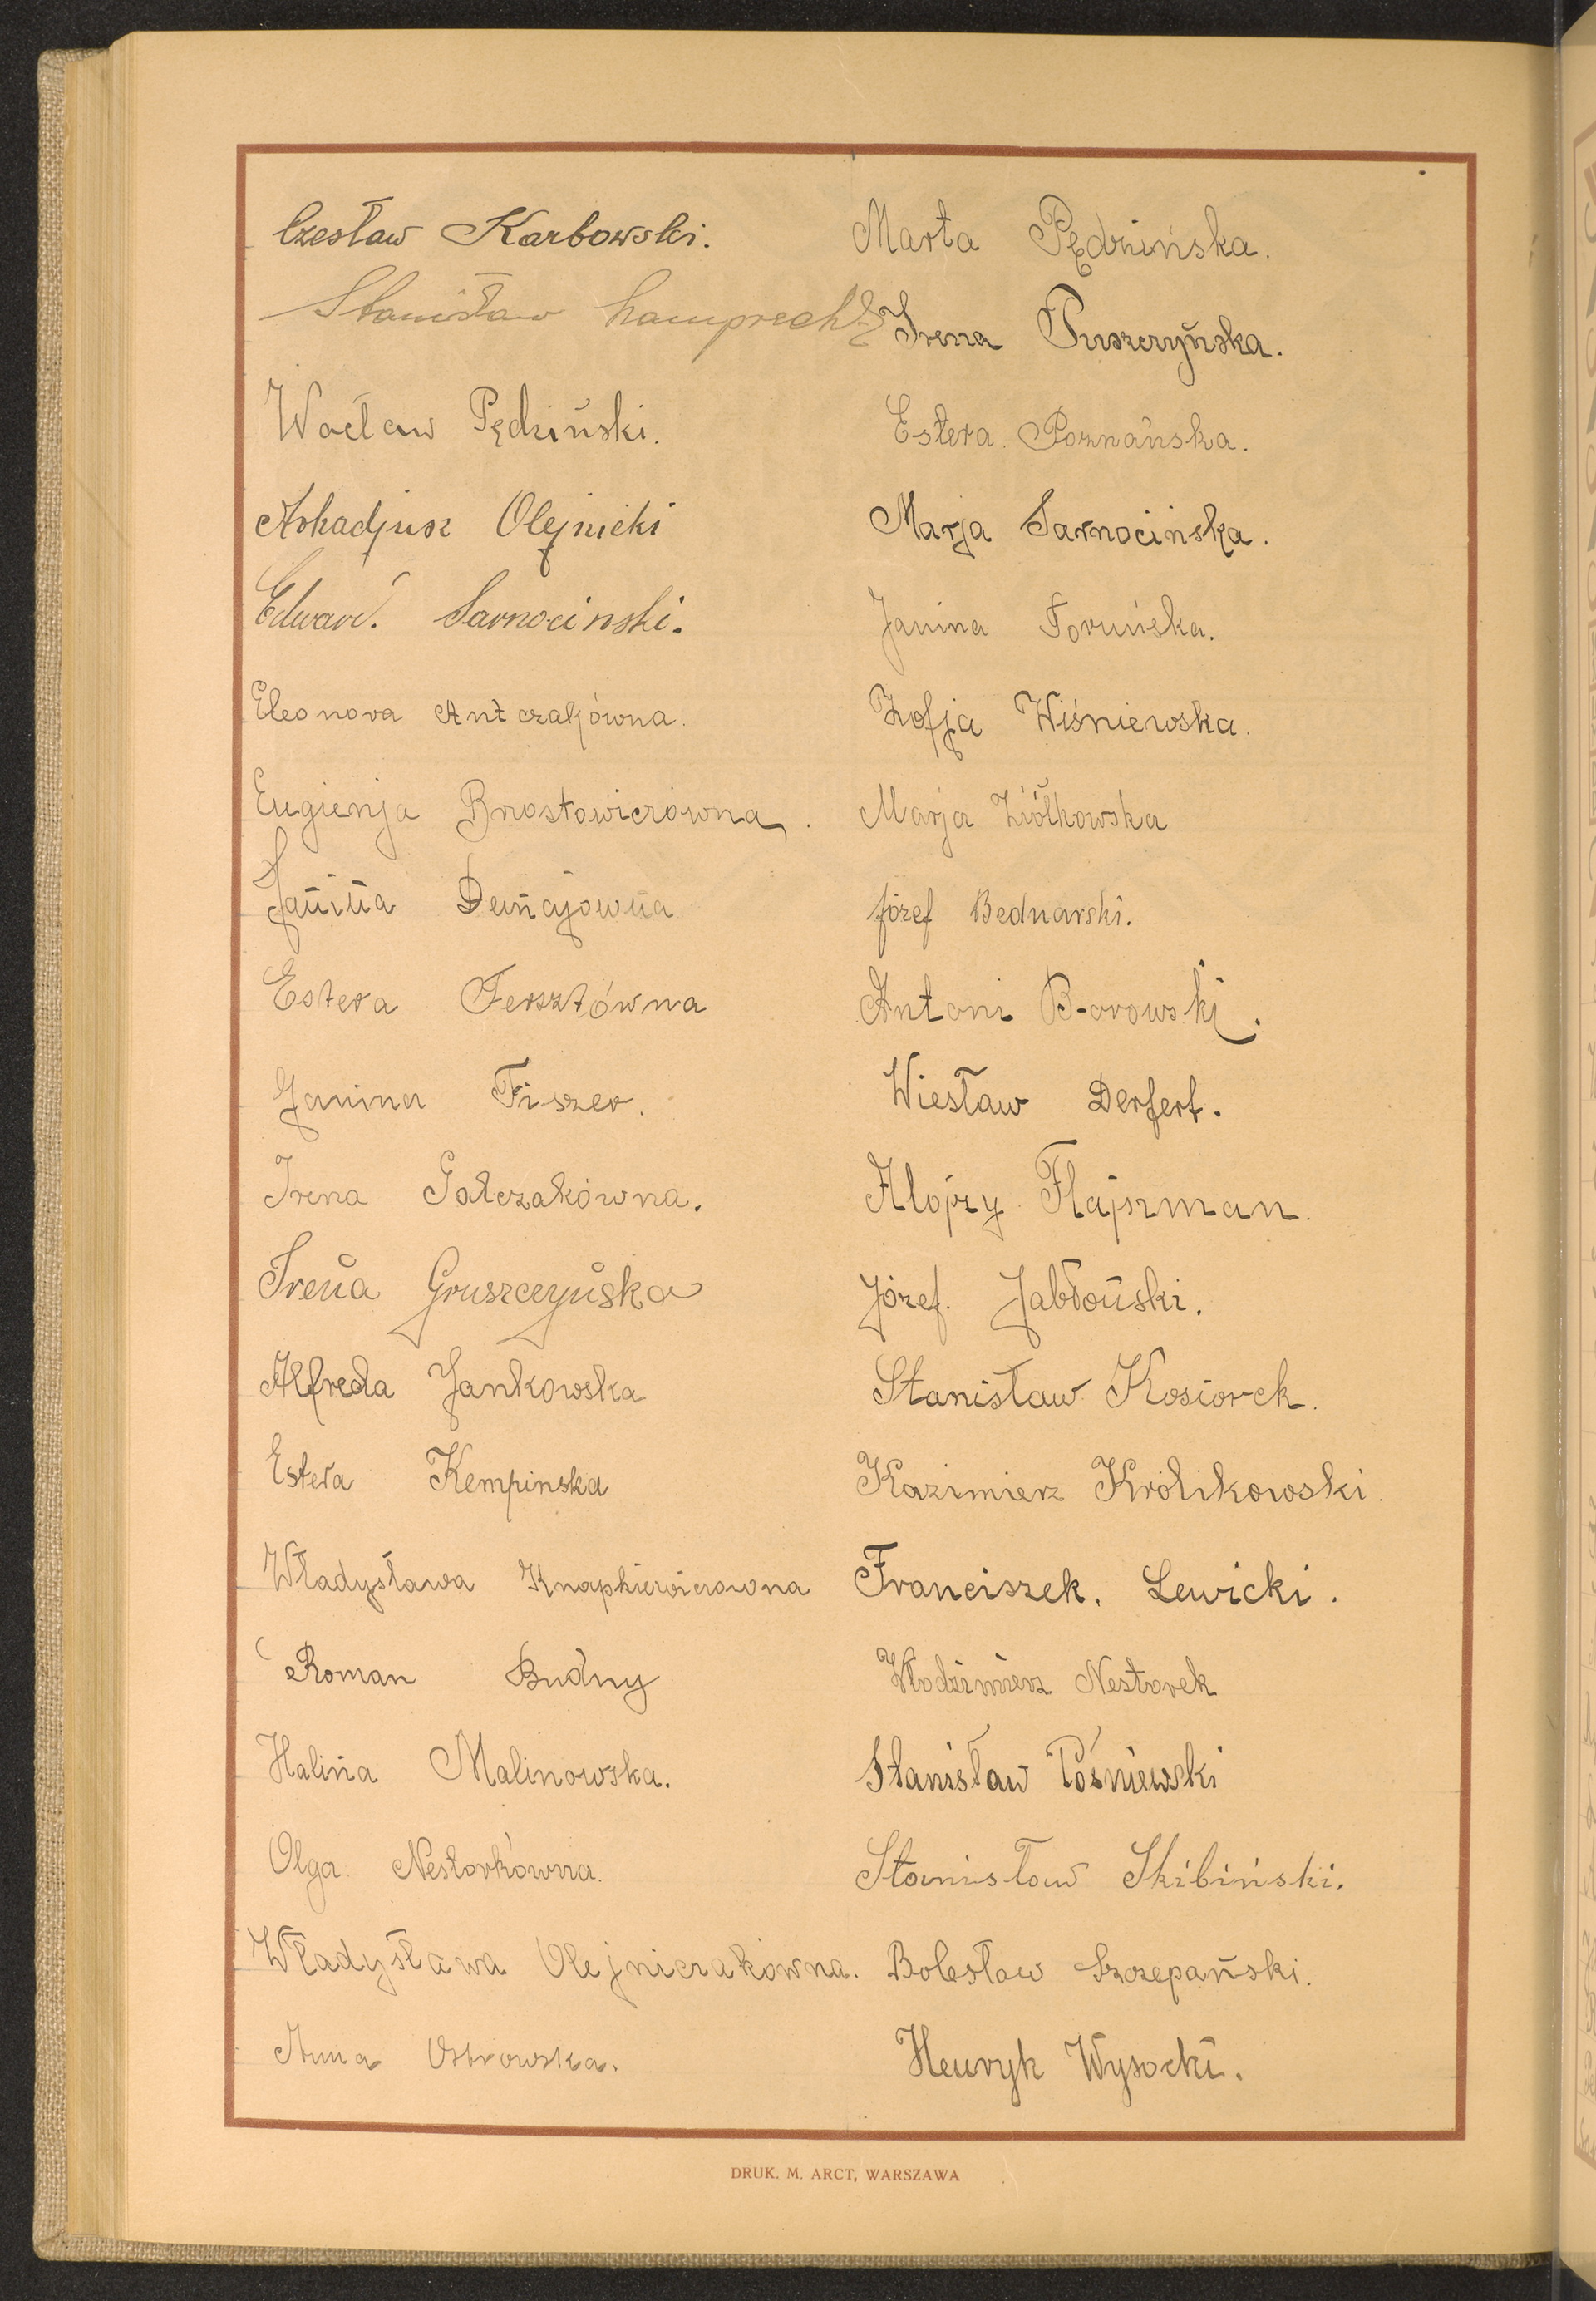 Czesław Karbowski.
Stanisław Lamprecht
Wacław Pędziński.
Arkadjusz Olejnicki
Edward. Sarnocinski.
Eleonora Antczakówna.
Eugienja Brzostowiczówna.
Janina Dunajowna
Estera Fersztówna
Janina Fiszer.
Irena Gałczakówna.
Irena Gruszczyńska
Alfreda Jankowska
Estera Kempinska
Władysława Knapkiewiczowna
Roman Budny
Halina Malinowska.
Olga Nestorkówna.
Władysława Olejniczakówna.
Anna Ostrowska.
Marta Pędzińska.
Irena Puszczyńska.
Estera. Poznańska.
Marja Sarnocińska.
Janina Toruńska.
Zofja Wiśniewska.
Marja Ziółkowska
Józef Bednarski.
Antoni Borowski.
Wiesław Derfert.
Alojzy Flajszman.
Józef. Jabłoński.
Stanisław Kosiorek.
Kazimierz Królikowski.
Franciszek. Lewicki.
Włodzimierz Nestorek
Stanisław Pośniewski
Stanisław Skibiński.
Bolesław Szczepański.
Henryk Wysocki.
DRUK. M. ARCT, WARSZAWA